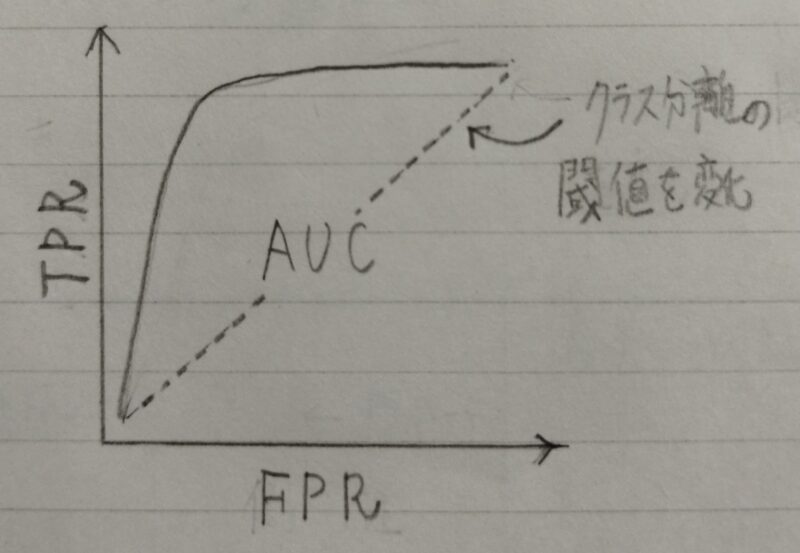 TPR
クラス分離の
閾値を変化
AUC
FPR